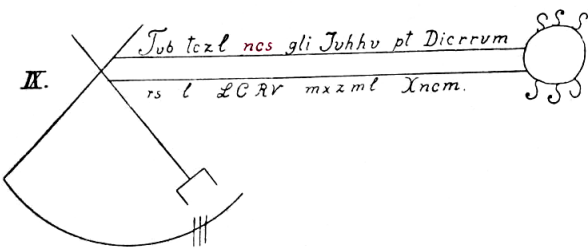 Tub tczl ncs gli Juhhu pt Dicrrum
IX.
rs l LCRV mxzml Xncm.